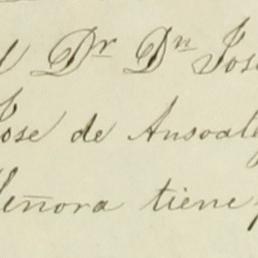 l Dr Dn José
José de Ansoaleg
Señora tiene